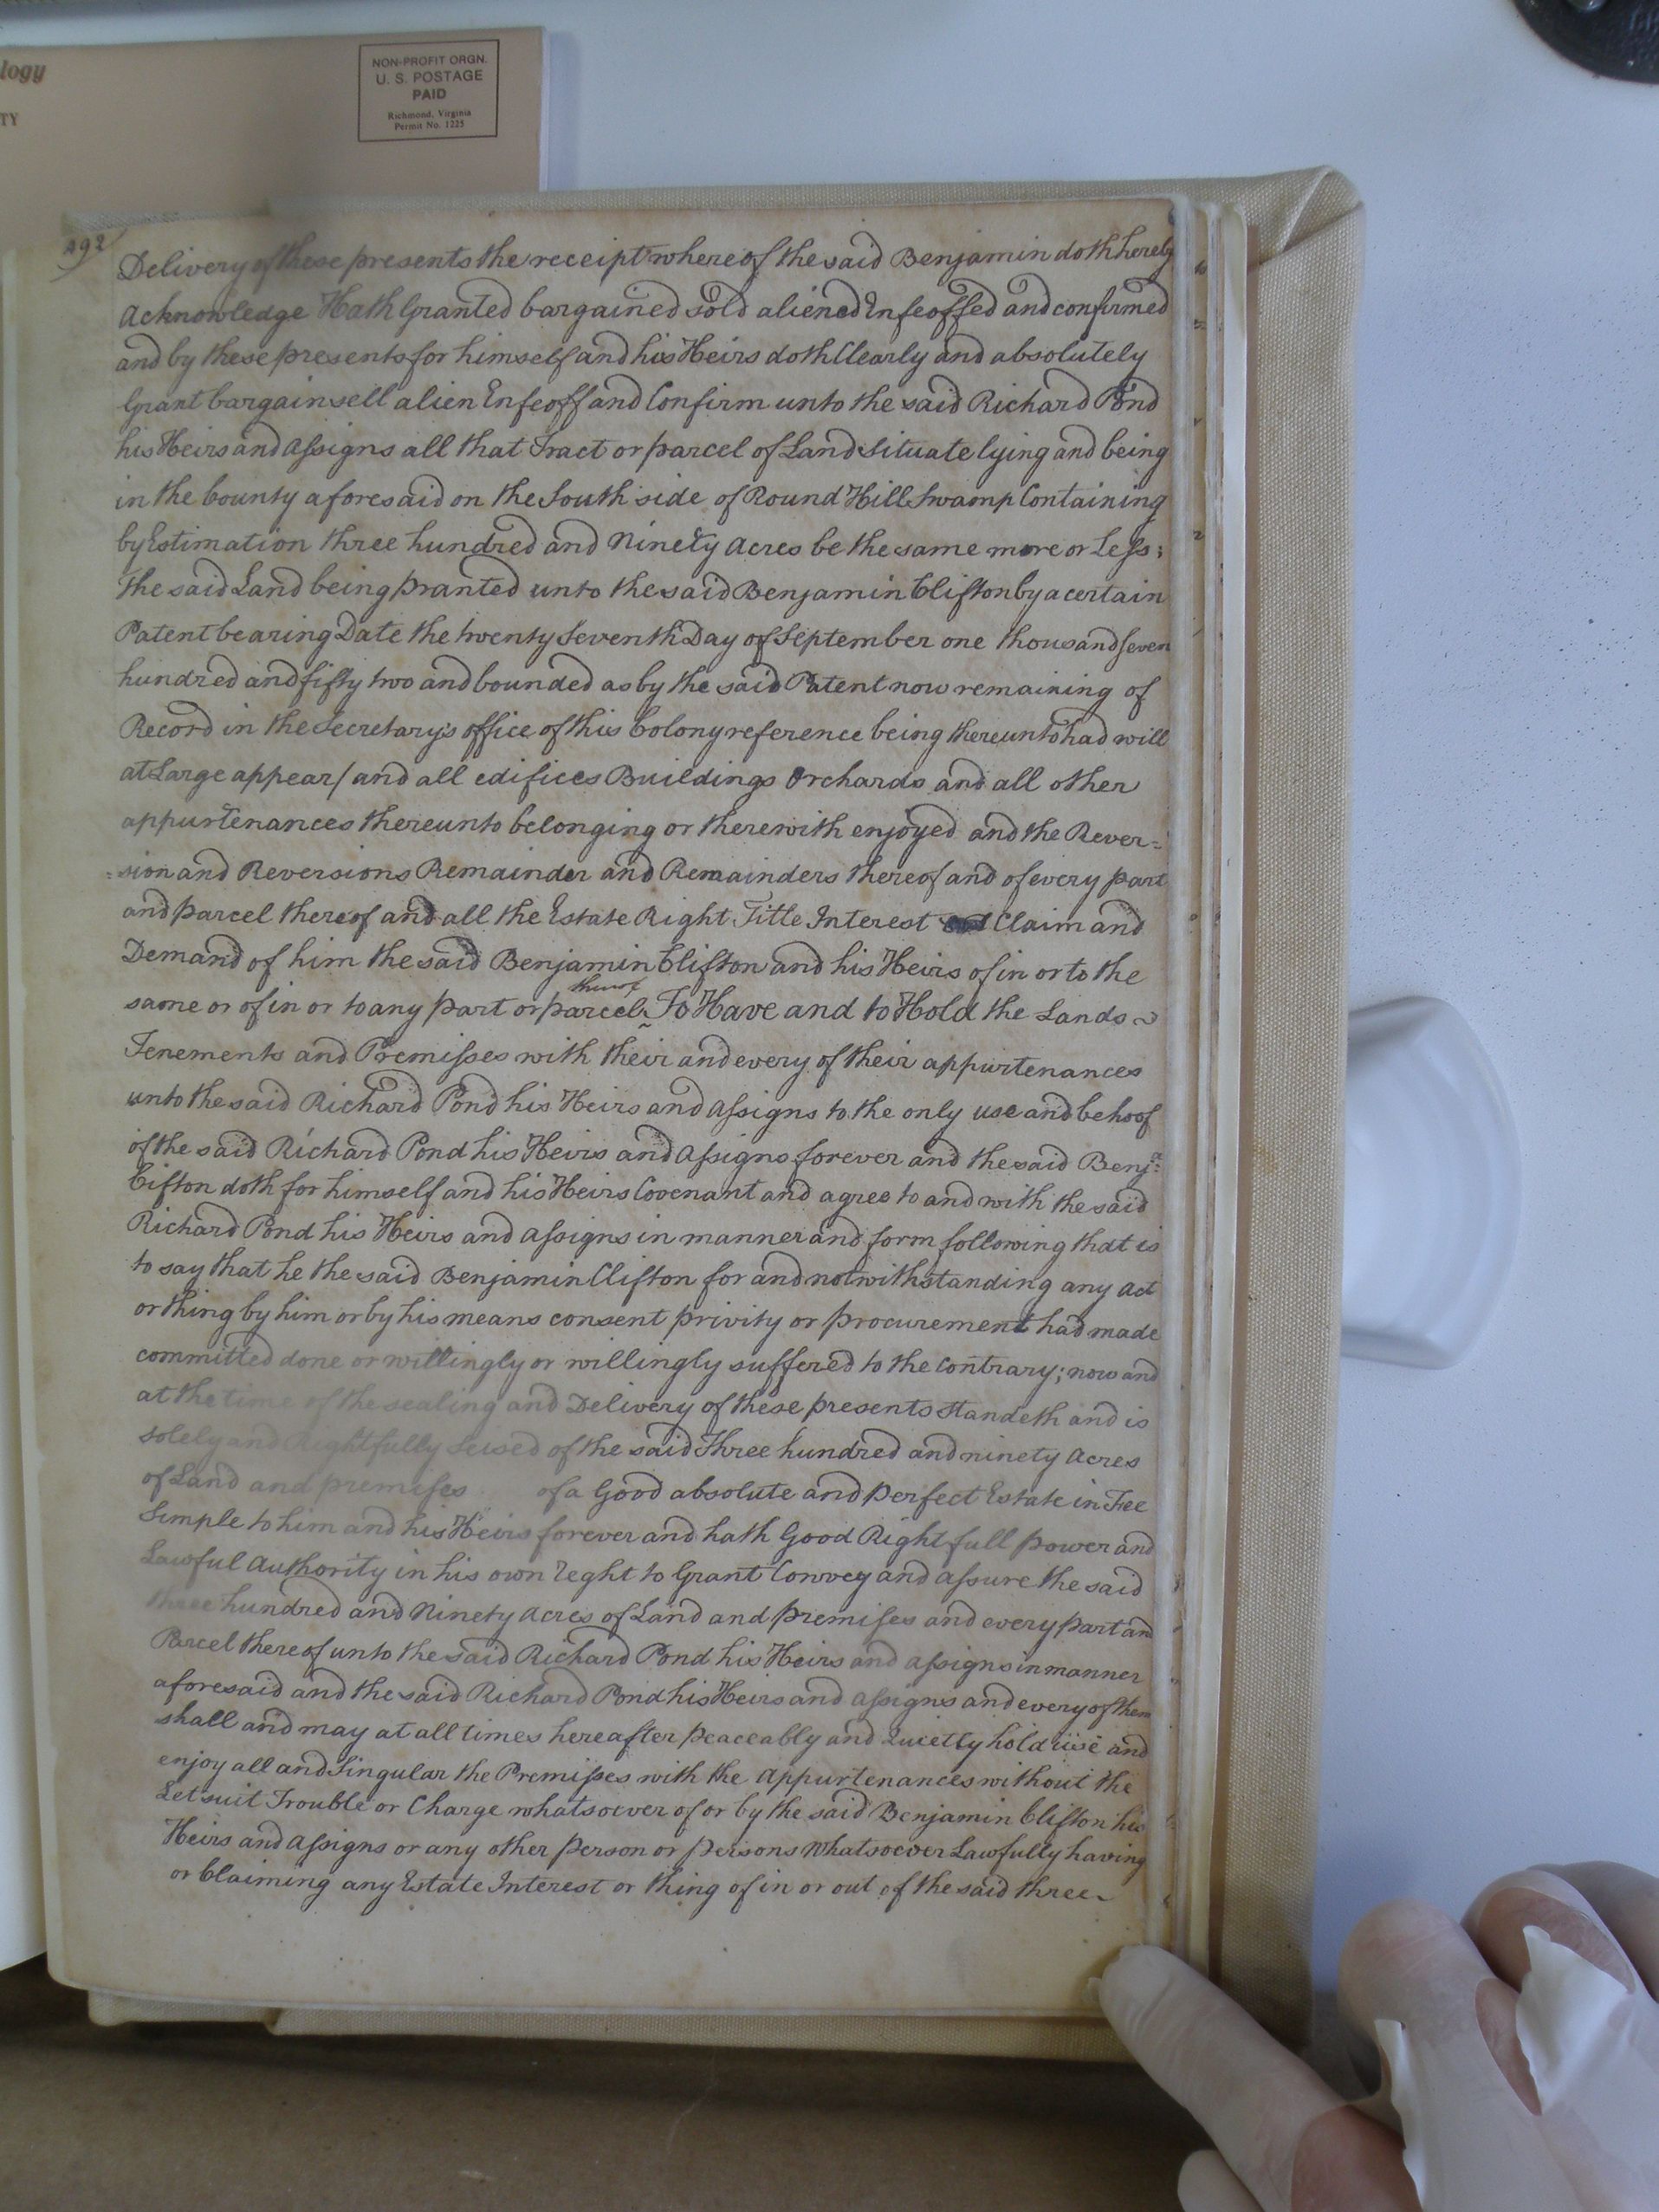 logy
TY
NON-PROFIT ORGN.
U. S. POSTAGE
PAID
Richmond, Virginia
Permit No. 1225
492
Delivery of these presents the receipt whereof the said Benjamin doth hereby
Acknowledge Hath Granted bargained sold aliened Infeoffed and confirmed
and by these presents for himself and his Heirs doth Clearly and absolutely
Grant bargain sell alien Enfeoff and Confirm unto the said Richard Pond
his Heirs and Assigns all that Tract or parcel of Land situate lying and being
in the County aforesaid on the South side of Round Hill Swamp Containing
by Estimation three hundred and Ninety Acres be the same more or Less;
The said Land being pranted unto the said Benjamin Clifton by a certain
Patent bearing Date the twenty Seventh Day of September one thousand seven
hundred and fifty two and bounded as by the said Patent now remaining of
Record in the Secretary's office of this Colony reference being thereunto had will
at Large appear/ and all edifices Buildings Orchards and all other
appurtenances thereunto belonging or therewith enjoyed and the Rever=
=sion and Reversions Remainder and Remainders thereof and of every part
and parcel thereof and all the Estate Right Title Interest Claim and
Demand of him the said Benjamin Clifton and his Heirs of in or to the
thereof
same or of in or to any part or parcel To Have and to Hold the Lands
Tenements and Premisses with their and every of their appurtenances
unto the said Richard Pond his Heirs and Assigns to the only use and behoof
of the said Richard Pond his Heirs and Assigns forever and the said Benj:a
Cifton doth for himself and his Heirs Covenant and agree to and with the said
Richard Pond his Heirs and Assigns in manner and form following that is
to say that he the said Benjamin Clifton for and notwithstanding any act
or thing by him or by his means consent privity or procurement had made
committed done or willingly or willingly suffered to the Contrary; now and
at the time of the sealing and Delivery of these presents Standeth and is
solely and Rightfully Seised of the said Three hundred and ninety Acres
of Land and premises of a Good absolute and Perfect Estate in Fee
Simple to him and his Heirs forever and hath Good Right full power and
Lawful Authority in his own reght to Grant Convey and assure the said
three hundred and Ninety Acres of Land and premises and every part and
Parcel thereof unto the said Richard Pond his Heirs and assigns in manner
aforesaid and the said Richard Pond his Heirs and Assigns and every of them
shall and may at all times hereafter peaceably and Quietly hold use and
enjoy all and Singular the Premisses with the Appurtenances without the
Let suit Trouble or Charge whatsoever of or by the said Benjamin Clifton his
Heirs and Assigns or any other Person or Persons Whatsoever Lawfully having
or Claiming any Estate Interest or thing of in or out of the said three